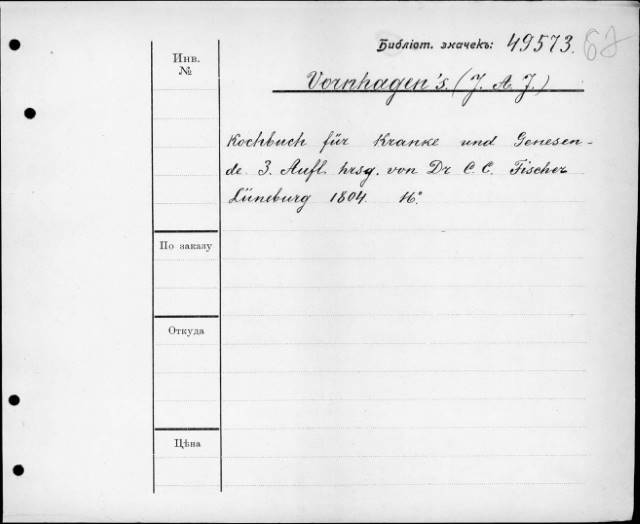 Библіот. значекъ: 49573.
Инв.
№
Vornhagen's. (J. A. J.)
Kochbuch für Kranke und Genesen-
de. 3. Aufl. hrsg. von Dr C. C. Fischer
Lüneburg 1804. 16°
По заказу
Откуда
Цѣна